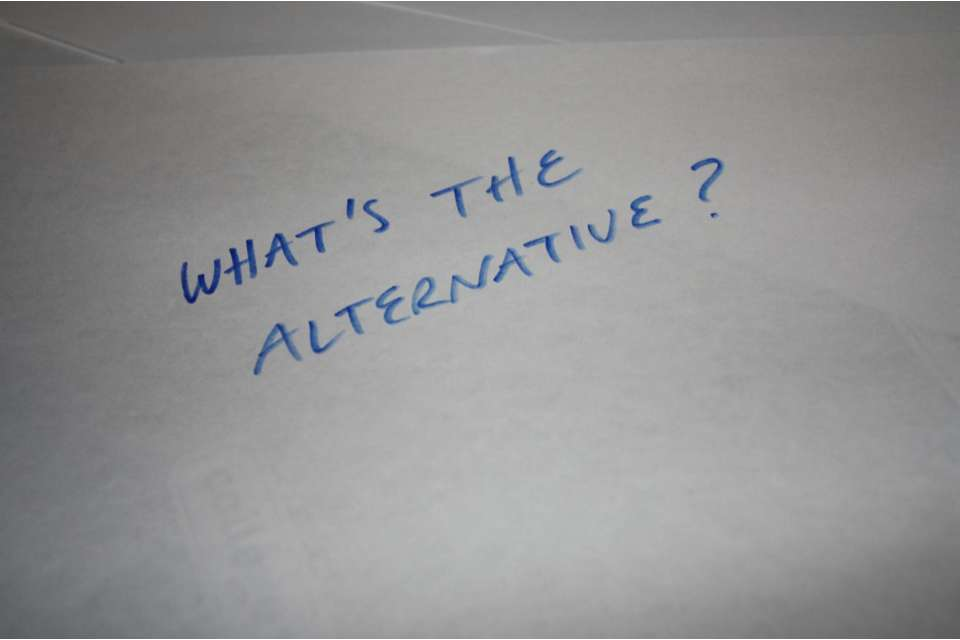 WHAT'S THE
ALTERNATIVE?